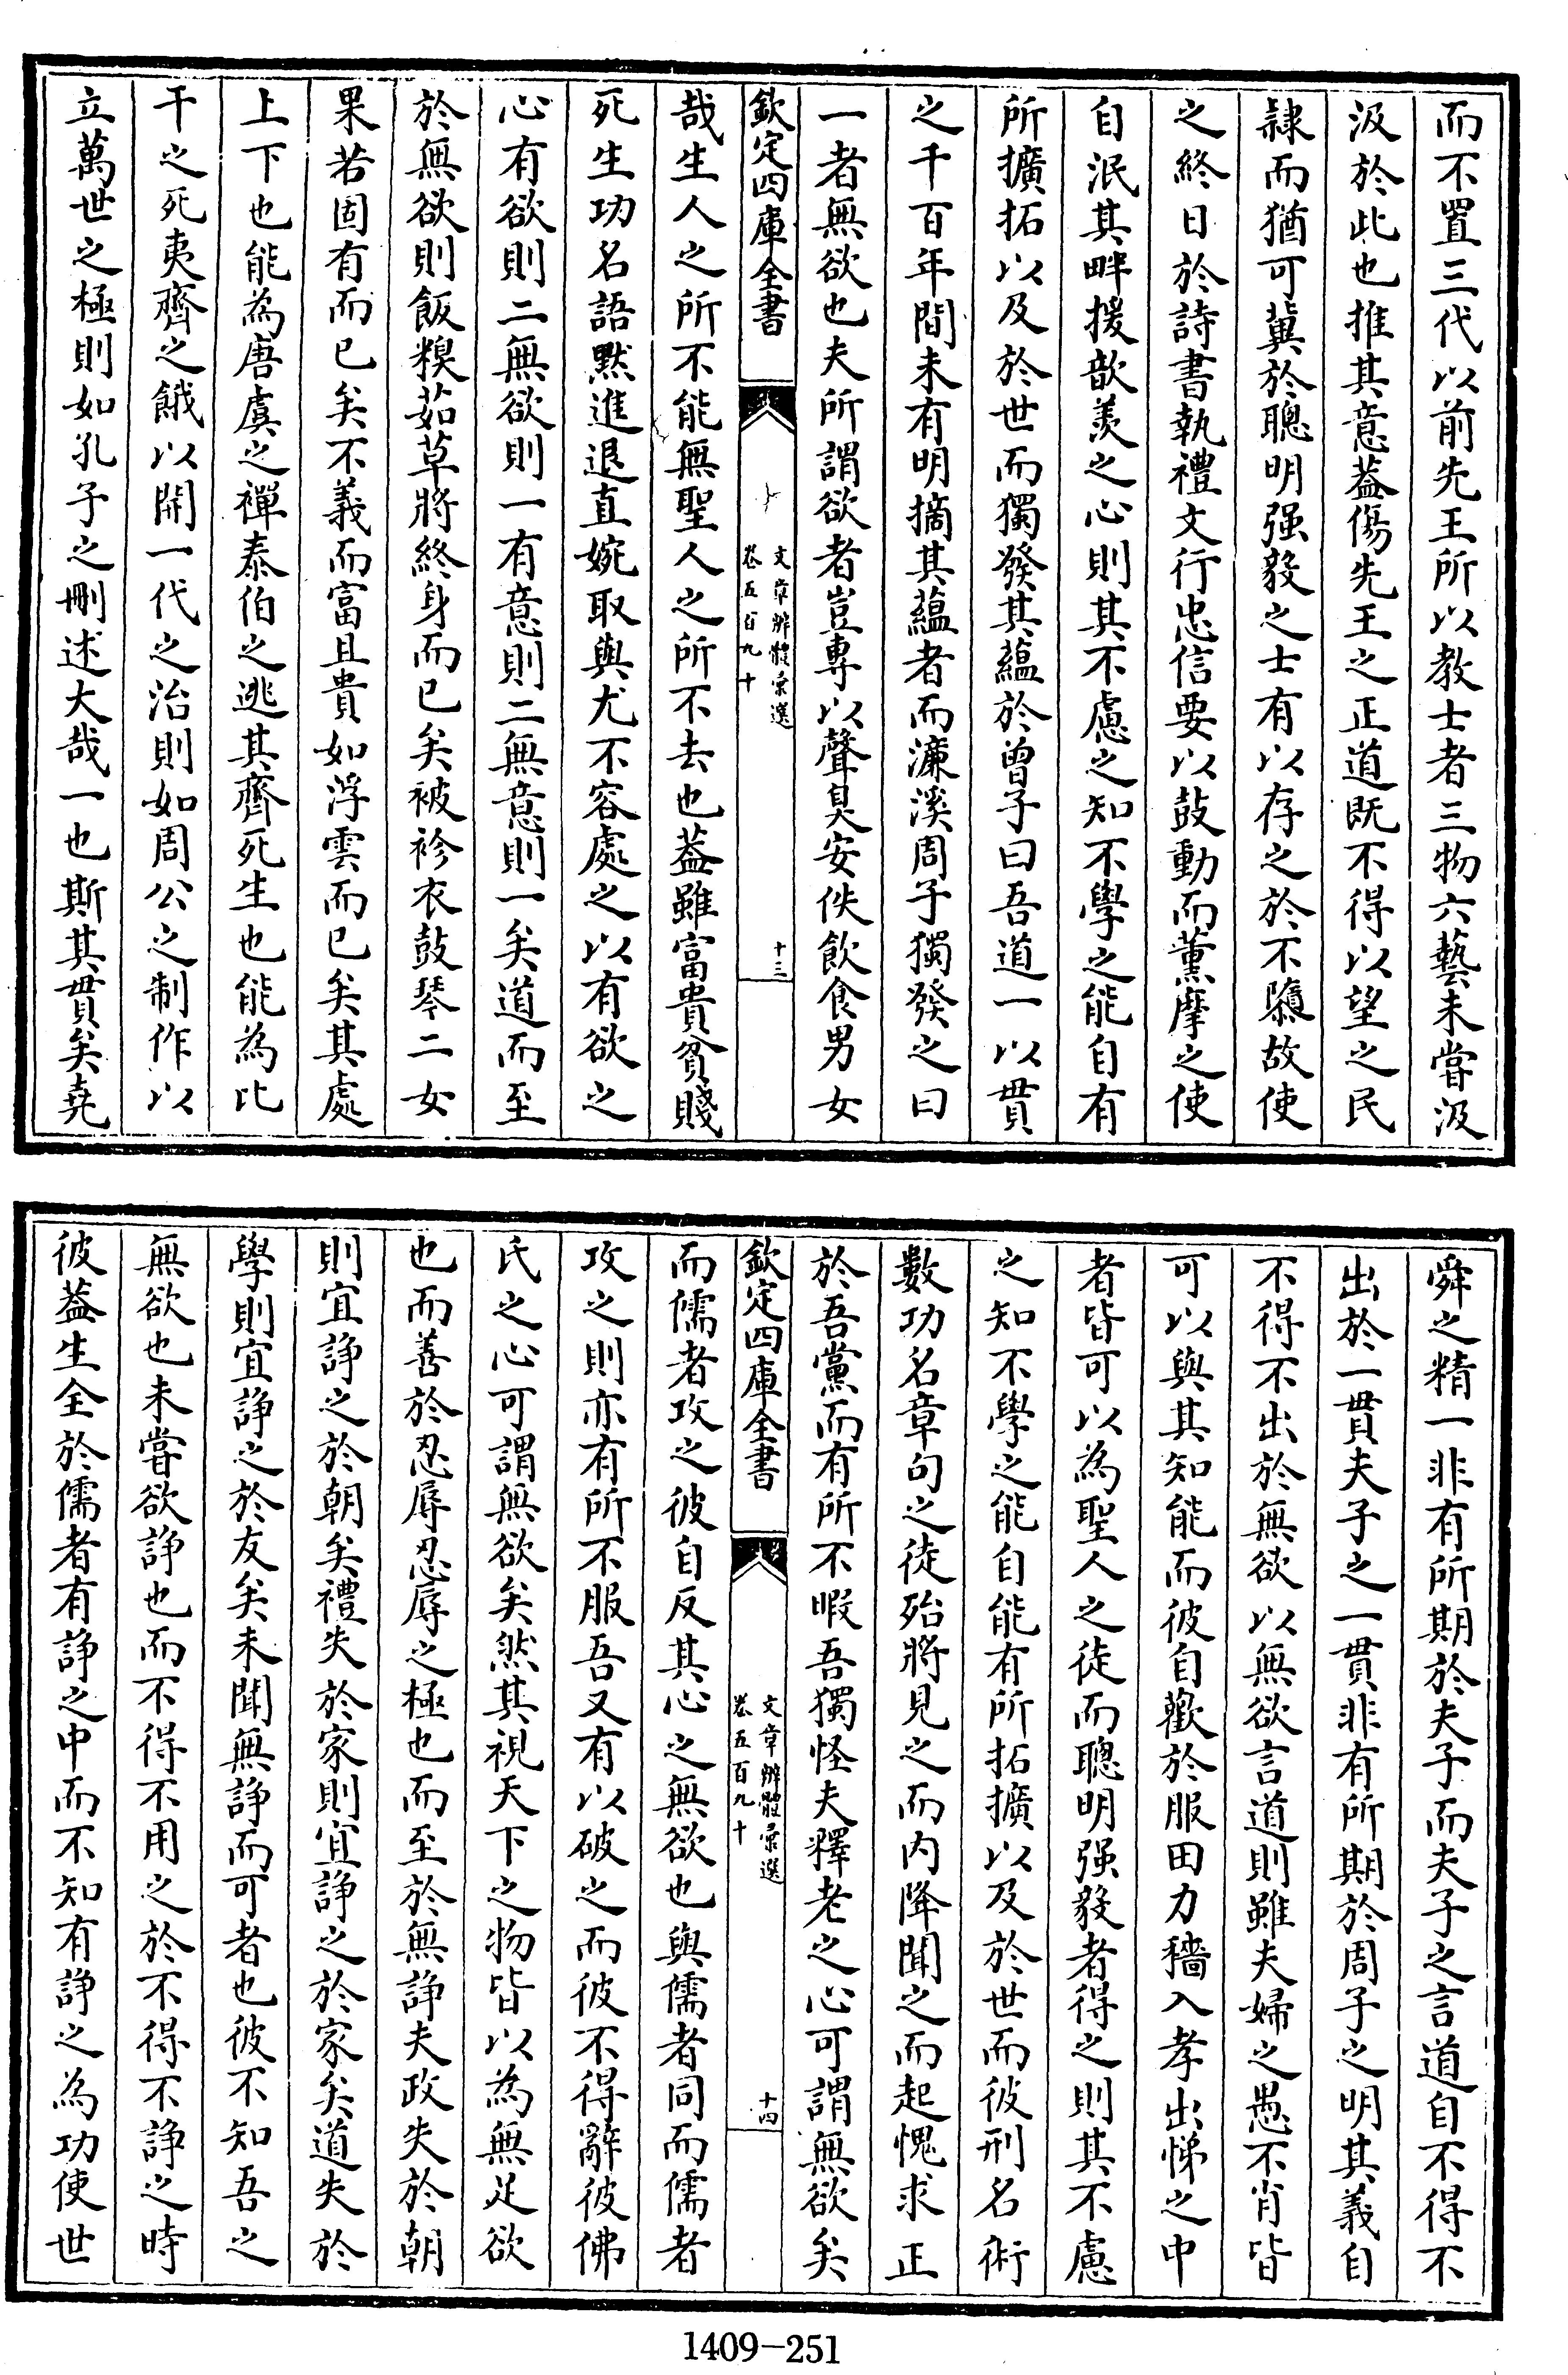 而不置三代以前先王所以教士者三物六藝未甞汲
汲於此也推其意葢傷先王之正道既不得以望之民
隷而猶可冀於聰明强毅之士有以存之於不隳故使
之終日於詩書執禮文行忠信要以鼓動而薫摩之使
自泯其畔援歆羡之心則其不慮之知不學之能自有
所擴拓以及於世而獨發其蘊於曾子曰吾道一以貫
之千百年間未有明摘其蘊者而濂溪周子獨發之曰
一者無欲也夫所謂欲者豈専以聲臭安佚飲食男女
欽定四庫全書
文章辨體彚選
卷五百九十
十三
哉生人之所不能無聖人之所不去也葢雖富貴貧賤
死生功名語黙進退直婉取與尤不容處之以有欲之
心有欲則二無欲則一有意則二無意則一矣道而至
於無欲則飯糗茹草將終身而已矣被袗衣鼓琴二女
果若固有而已矣不義而富且貴如浮雲而已矣其處
上下也能為唐虞之禪泰伯之逃其齊死生也能為比
干之死夷齊之餓以開一代之治則如周公之制作以
立萬世之極則如孔子之刪述大哉一也斯其貫矣堯
舜之精一非有所期於夫子而夫子之言道自不得不
出於一貫夫子之一貫非有所期於周子之明其義自
不得不出於無欲以無欲言道則雖夫婦之愚不肖皆
可以與其知能而彼自歡於服田力穡入孝出悌之中
者皆可以為聖人之徒而聰明强毅者得之則其不慮
之知不學之能自能有所拓擴以及於世而彼刑名術
數功名章句之徒殆將見之而内降聞之而起愧求正
於吾黨而有所不暇吾獨怪夫釋老之心可謂無欲矣
欽定四庫全書
文章辨體彚選
卷五百九十
十四
而儒者攻之彼自反其心之無欲也與儒者同而儒者
攻之則亦有所不服吾又有以破之而彼不得辭彼佛
氏之心可謂無欲矣然其視天下之物皆以為無足欲
也而善於忍辱忍辱之極也而至於無諍夫政失於朝
則宜諍之於朝矣禮失於家則宜諍之於家矣道失於
學則宜諍之於友矣未聞無諍而可者也彼不知吾之
無欲也未甞欲諍也而不得不用之於不得不諍之時
彼葢生全於儒者有諍之中而不知有諍之為功使世
1409-251